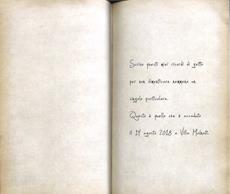 Scrivo questi miei ricordi di getto
per non dimenticare nemmeno un
singolo particolare.
Questo è quello che è accaduto
il 19 agosto 2018 a Villa